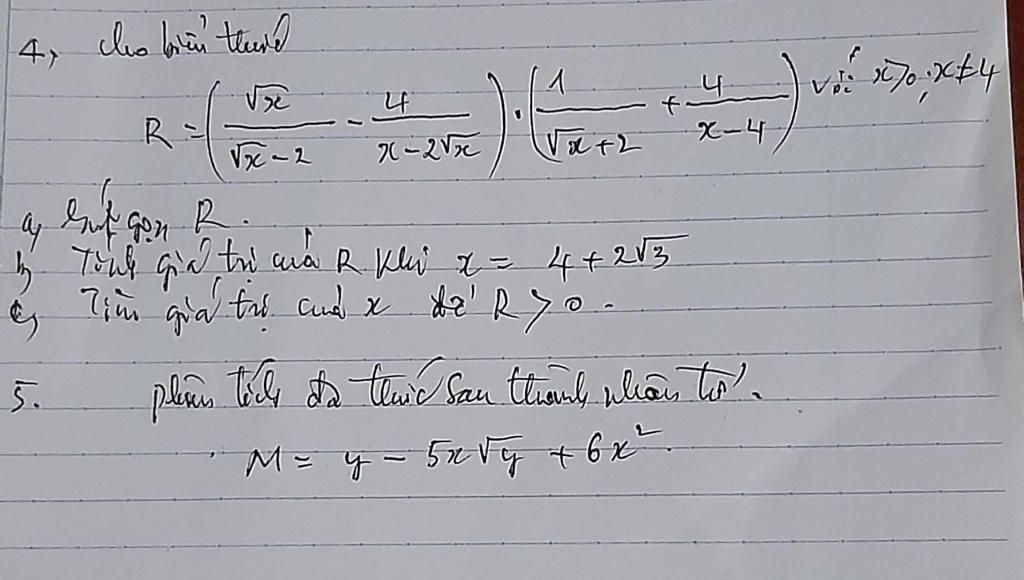 4, Cho biểu thức
R = ( √x / (√x - 2) - 4 / (x - 2√x) ) . ( 1 / (√x + 2) + 4 / (x - 4) ) với x > 0 ; x ≠ 4
a, Rút gọn R.
b, Tính giá trị của R khi x = 4 + 2√3
c, Tìm giá trị của x để R > 0.
5. phân tích đa thức sau thành nhân tử.
M = y - 5x√y + 6x²